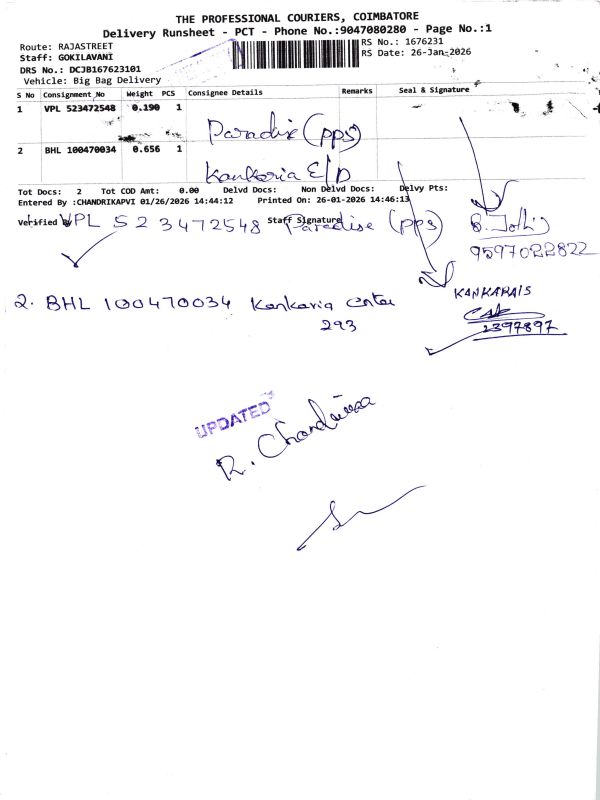 THE PROFESSIONAL COURIERS, COIMBATORE
Delivery Runsheet - PCT - Phone No.:9047080280 - Page No.:1
Route: RAJASTREET
RS No.: 1676231
Staff: GOKILAVANI
RS Date: 26-Jan-2026
DRS No.: DCJB167623101
Vehicle: Big Bag Delivery
S No Consignment No Weight PCS Consignee Details Remarks Seal & Signature
1 VPL 523472548 0.190 1
Paradise (pps)
2 BHL 100470034 0.656 1
Kankaria E/D
Tot Docs: 2 Tot COD Amt: 0.00 Delvd Docs: Non Delvd Docs: Delvy Pts:
Entered By :CHANDRIKAPVI 01/26/2026 14:44:12 Printed On: 26-01-2026 14:46:13
Verified By Staff Signature
1. VPL 523472548 Paradise (pps)
9597022822
2. BHL 100470034 Kankaria
293
KANKARAIS
2397897
UPDATED
R.